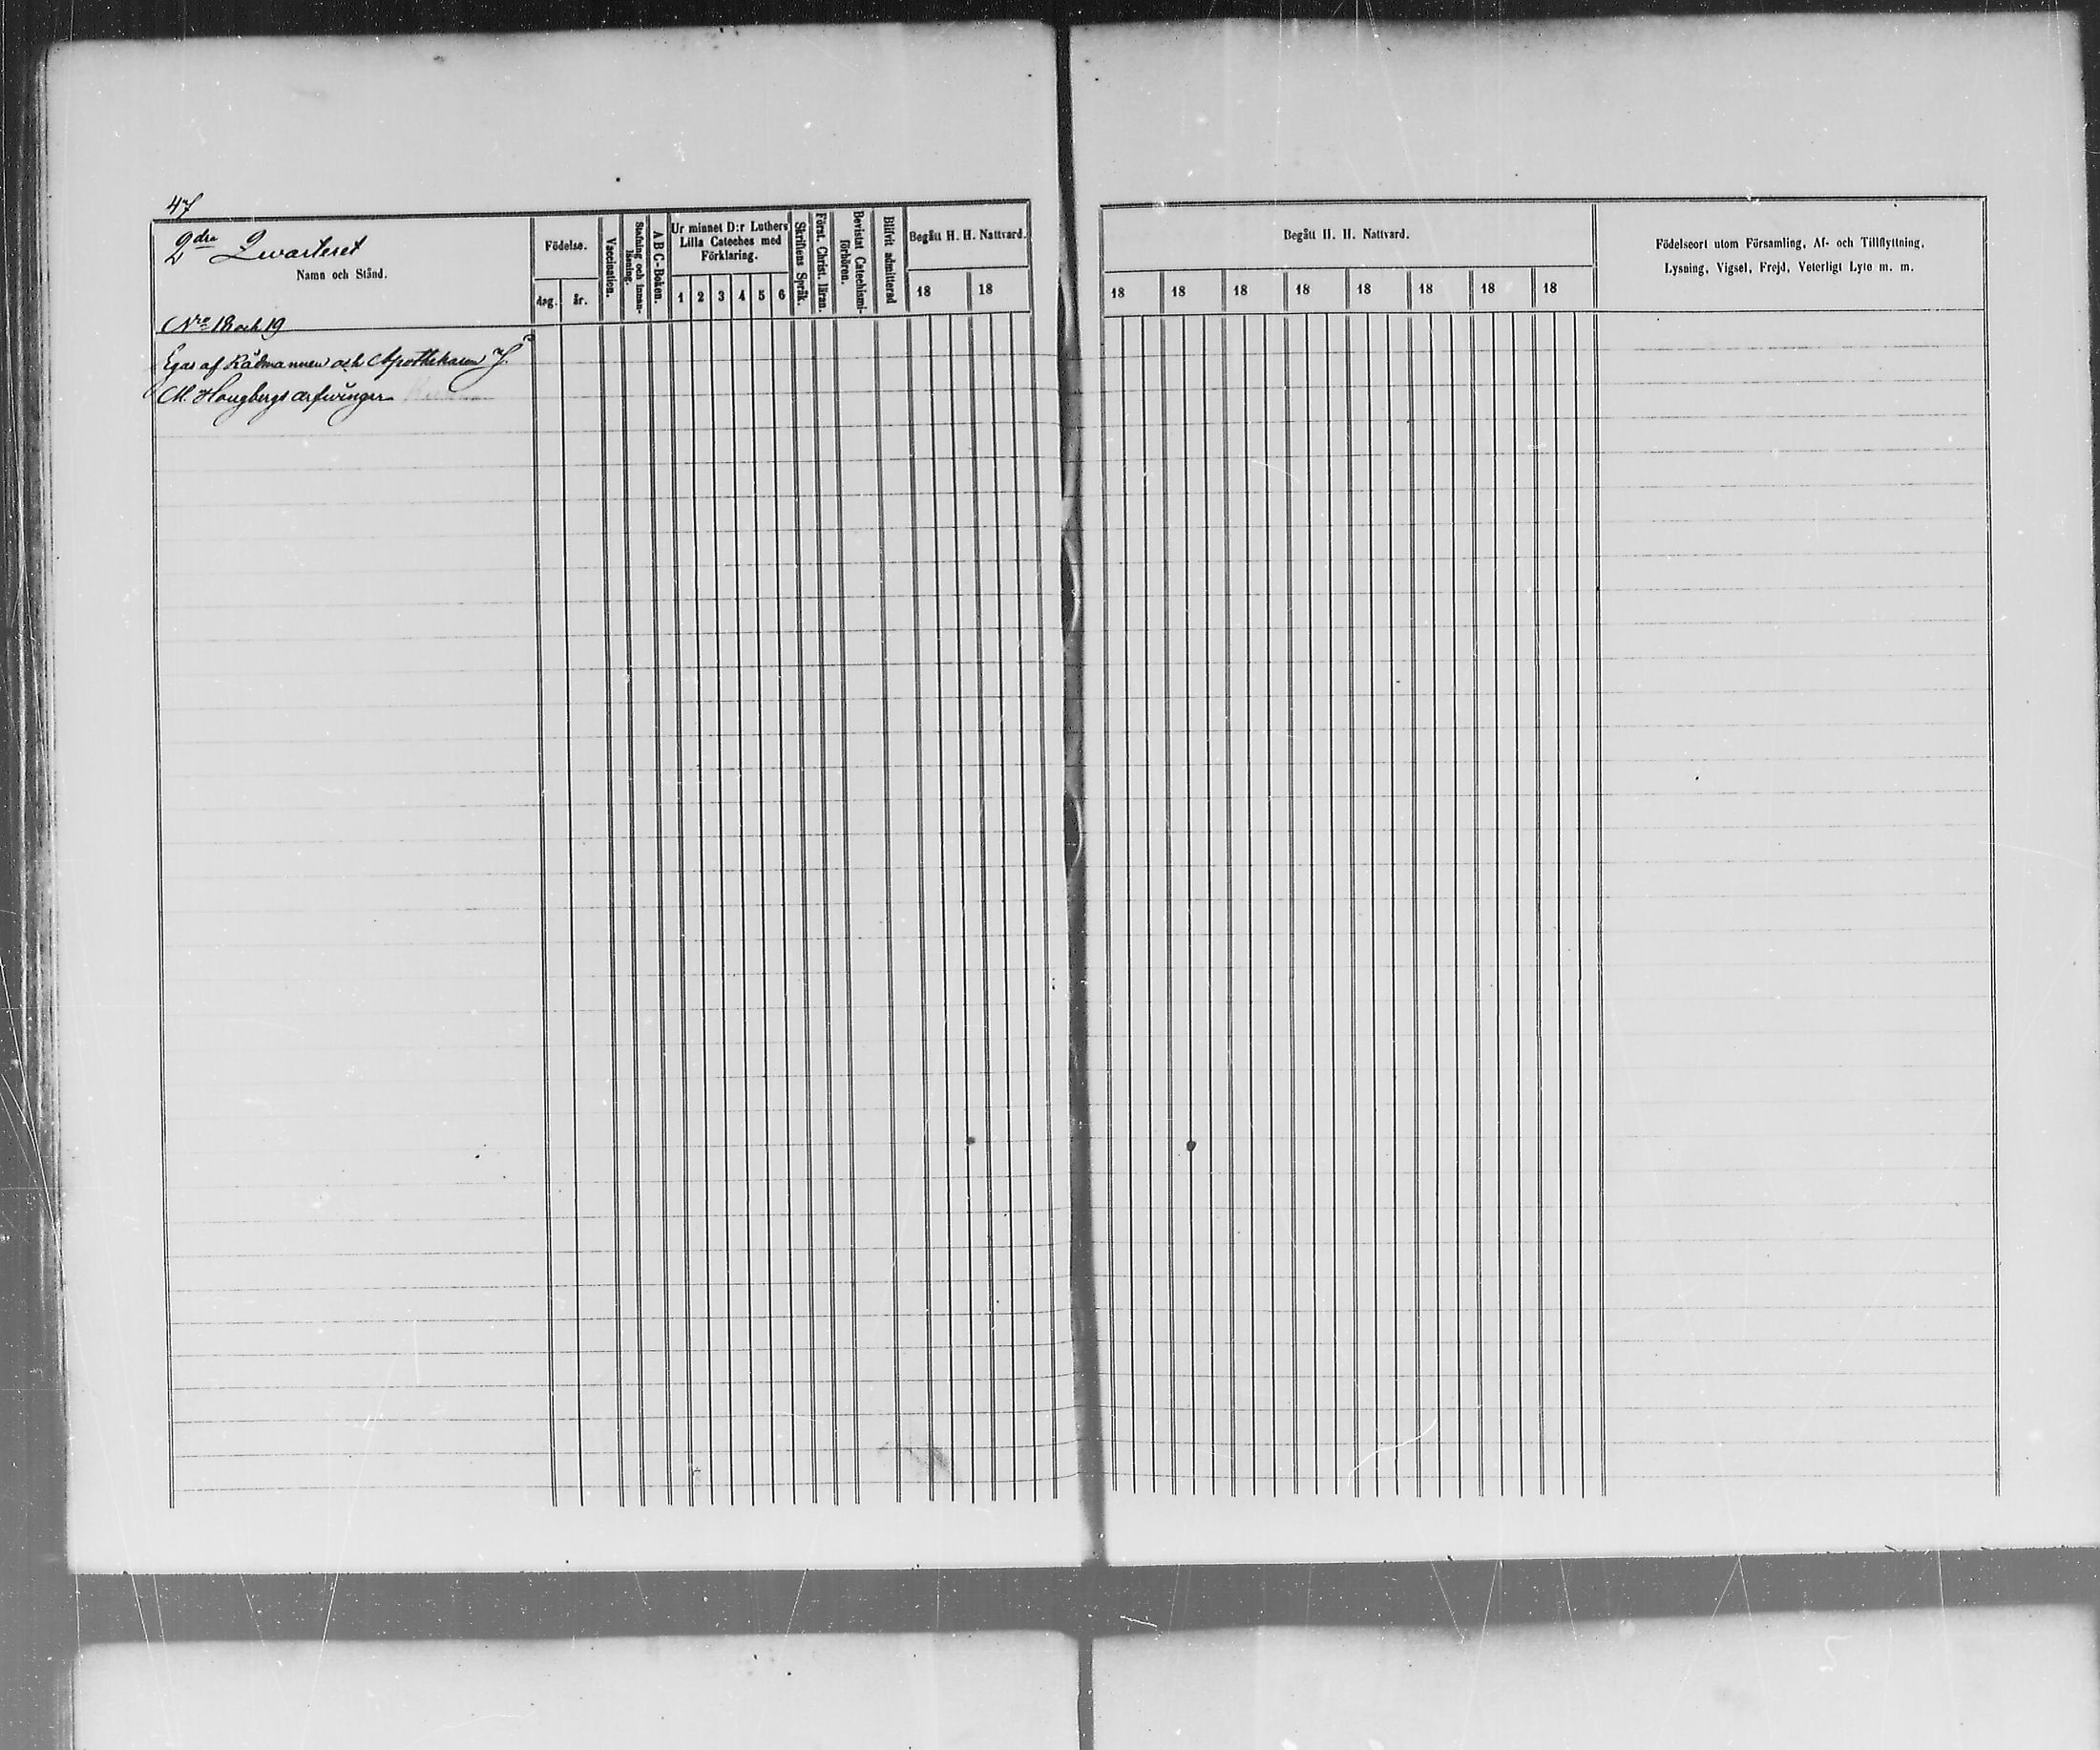 47
2dra Qvarteret
Namn och Stånd.
Födelse.
dag.
år.
Vaccination.
Stafning och innan-
läsning.
A B C-Boken.
Ur minnet D:r Luthers
Lilla Cateches med
Förklaring.
1 2 3 4 5 6
Skriftens Språk.
Först. Christ. läran.
Bevistat Catechismi-
förhören.
Blifvit admitterad
Begått H. H. Nattvard.
18 18
Begått H. H. Nattvard.
18 18 18 18 18 18 18 18
Födelseort utom Församling, Af- och Tillflyttning,
Lysning, Vigsel, Frejd, Veterligt Lyte m. m.
Nro 18 och 19
Egas af Rådmannen och Apothekaren J.
M. Hougbergs arfvingar